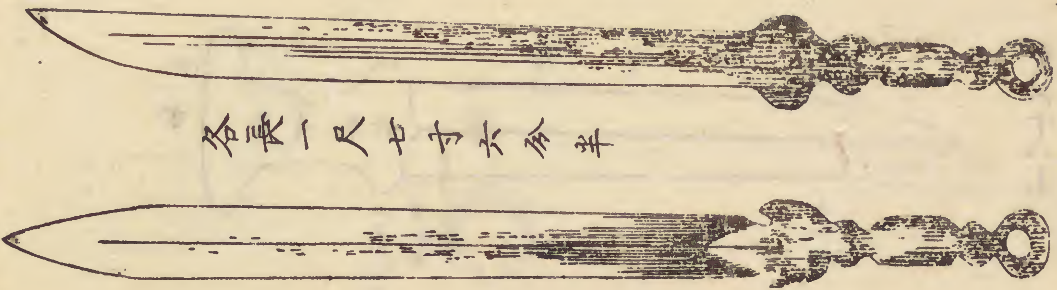 各長一尺七寸六分半